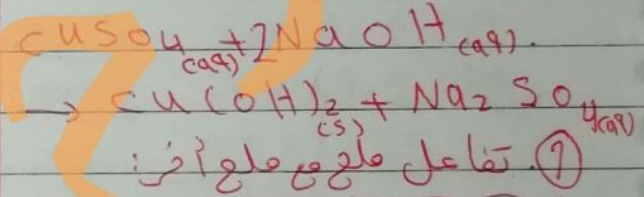 CuSO4(aq) + 2NaOH(aq).
→ Cu(OH)2(s) + Na2SO4(aq)
① تفاعل ملح مع ملح آخر: